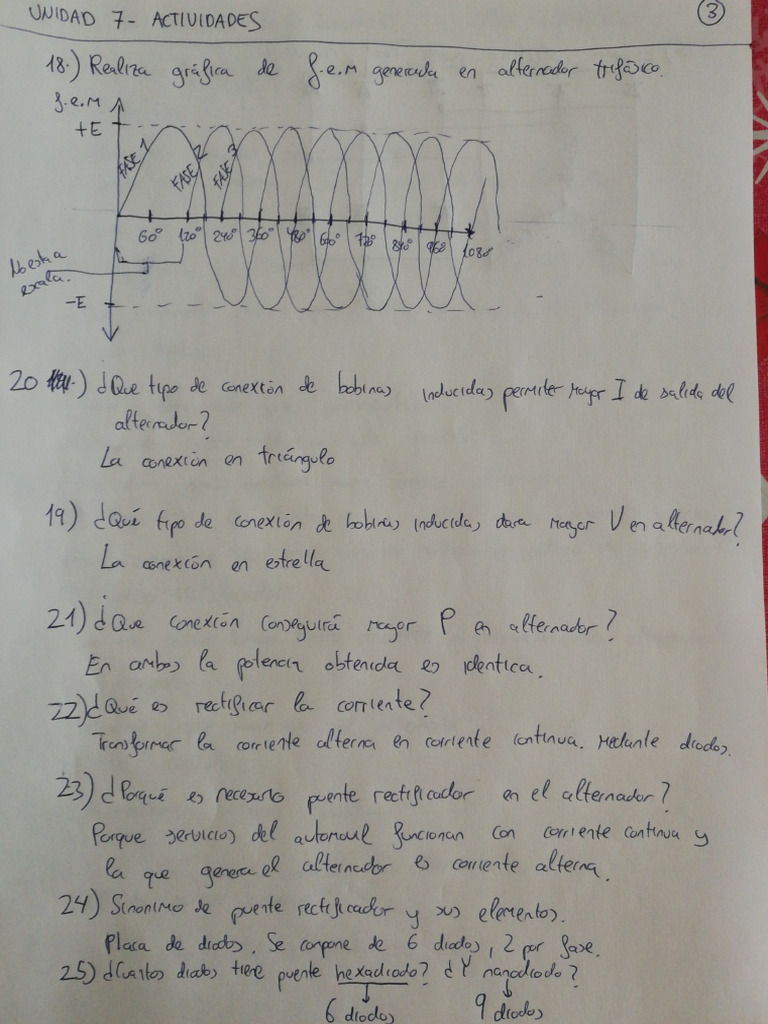 UNIDAD 7- ACTIVIDADES
3
18.) Realiza gráfica de f.e.m generada en alternador trifásico.
f.e.M
+E
FASE 1
FASE 2
FASE 3
60º 120º 240º 360º 480º 600º 720º 840º 960º 1080º
No esta a
escala.
-E
20 .) ¿Que tipo de conexión de bobinas inducidas permiter mayor I de salida del
alternador?
La conexión en triángulo
19) ¿Qué tipo de conexión de bobinas inducidas dara mayor V en alternador?
La conexión en estrella
21) ¿Que conexión conseguirá mayor P en alternador?
En ambos la potencia obtenida es identica.
22) ¿Qué es rectificar la corriente?
Transformar la corriente alterna en corriente continua. Mediante diodos.
23) ¿Porqué es necesario puente rectificador en el alternador?
Porque servicios del automovil funcionan con corriente continua y
la que genera el alternador es corriente alterna.
24) Sinonimo de puente rectificador y sus elementos.
Placa de diodos. Se compone de 6 diodos, 2 por fase.
25) ¿Cuantos diodos tiene puente hexadiodo? ¿Y nanodiodo?
6 diodos 9 diodos